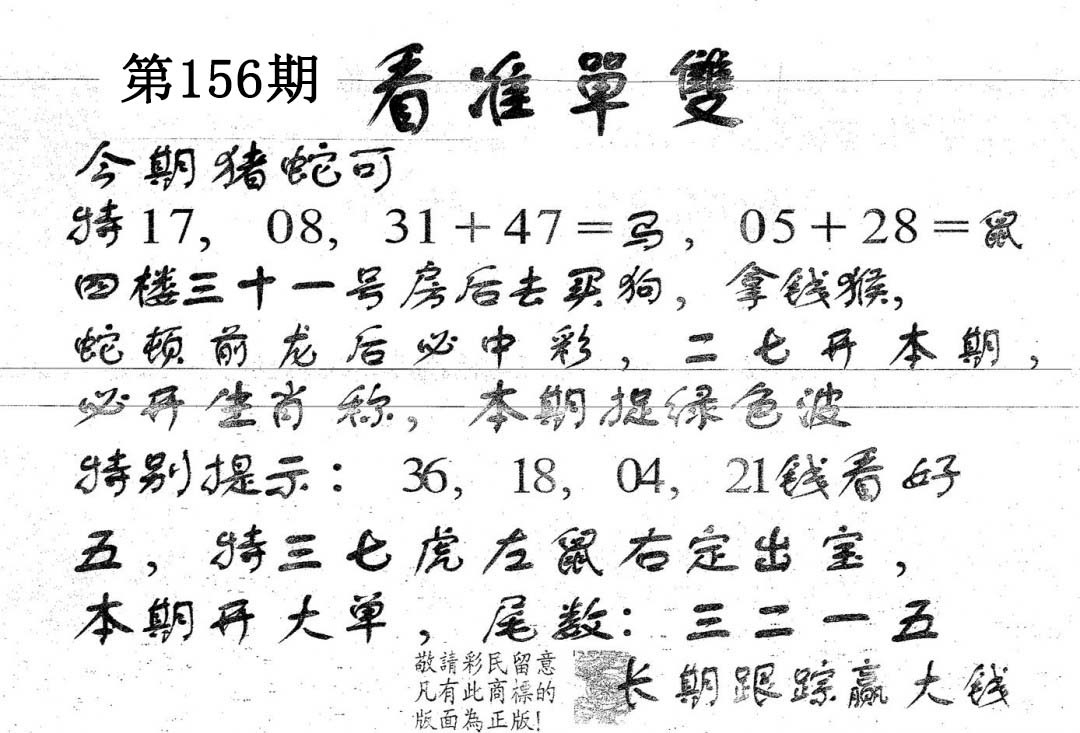 第156期 看准單雙
今期猪蛇可
特17, 08, 31+47=马, 05+28=鼠
四楼三十一号房后去买狗,拿钱猴,
蛇顿前龙后必中彩,二七开本期,
必开生肖称,本期捉绿色波
特别提示:36, 18, 04, 21钱看好
五,特三七虎左鼠右定出宝,
本期开大单,尾数:三二一五
敬請彩民留意
凡有此商標的
版面為正版!
长期跟踪赢大钱